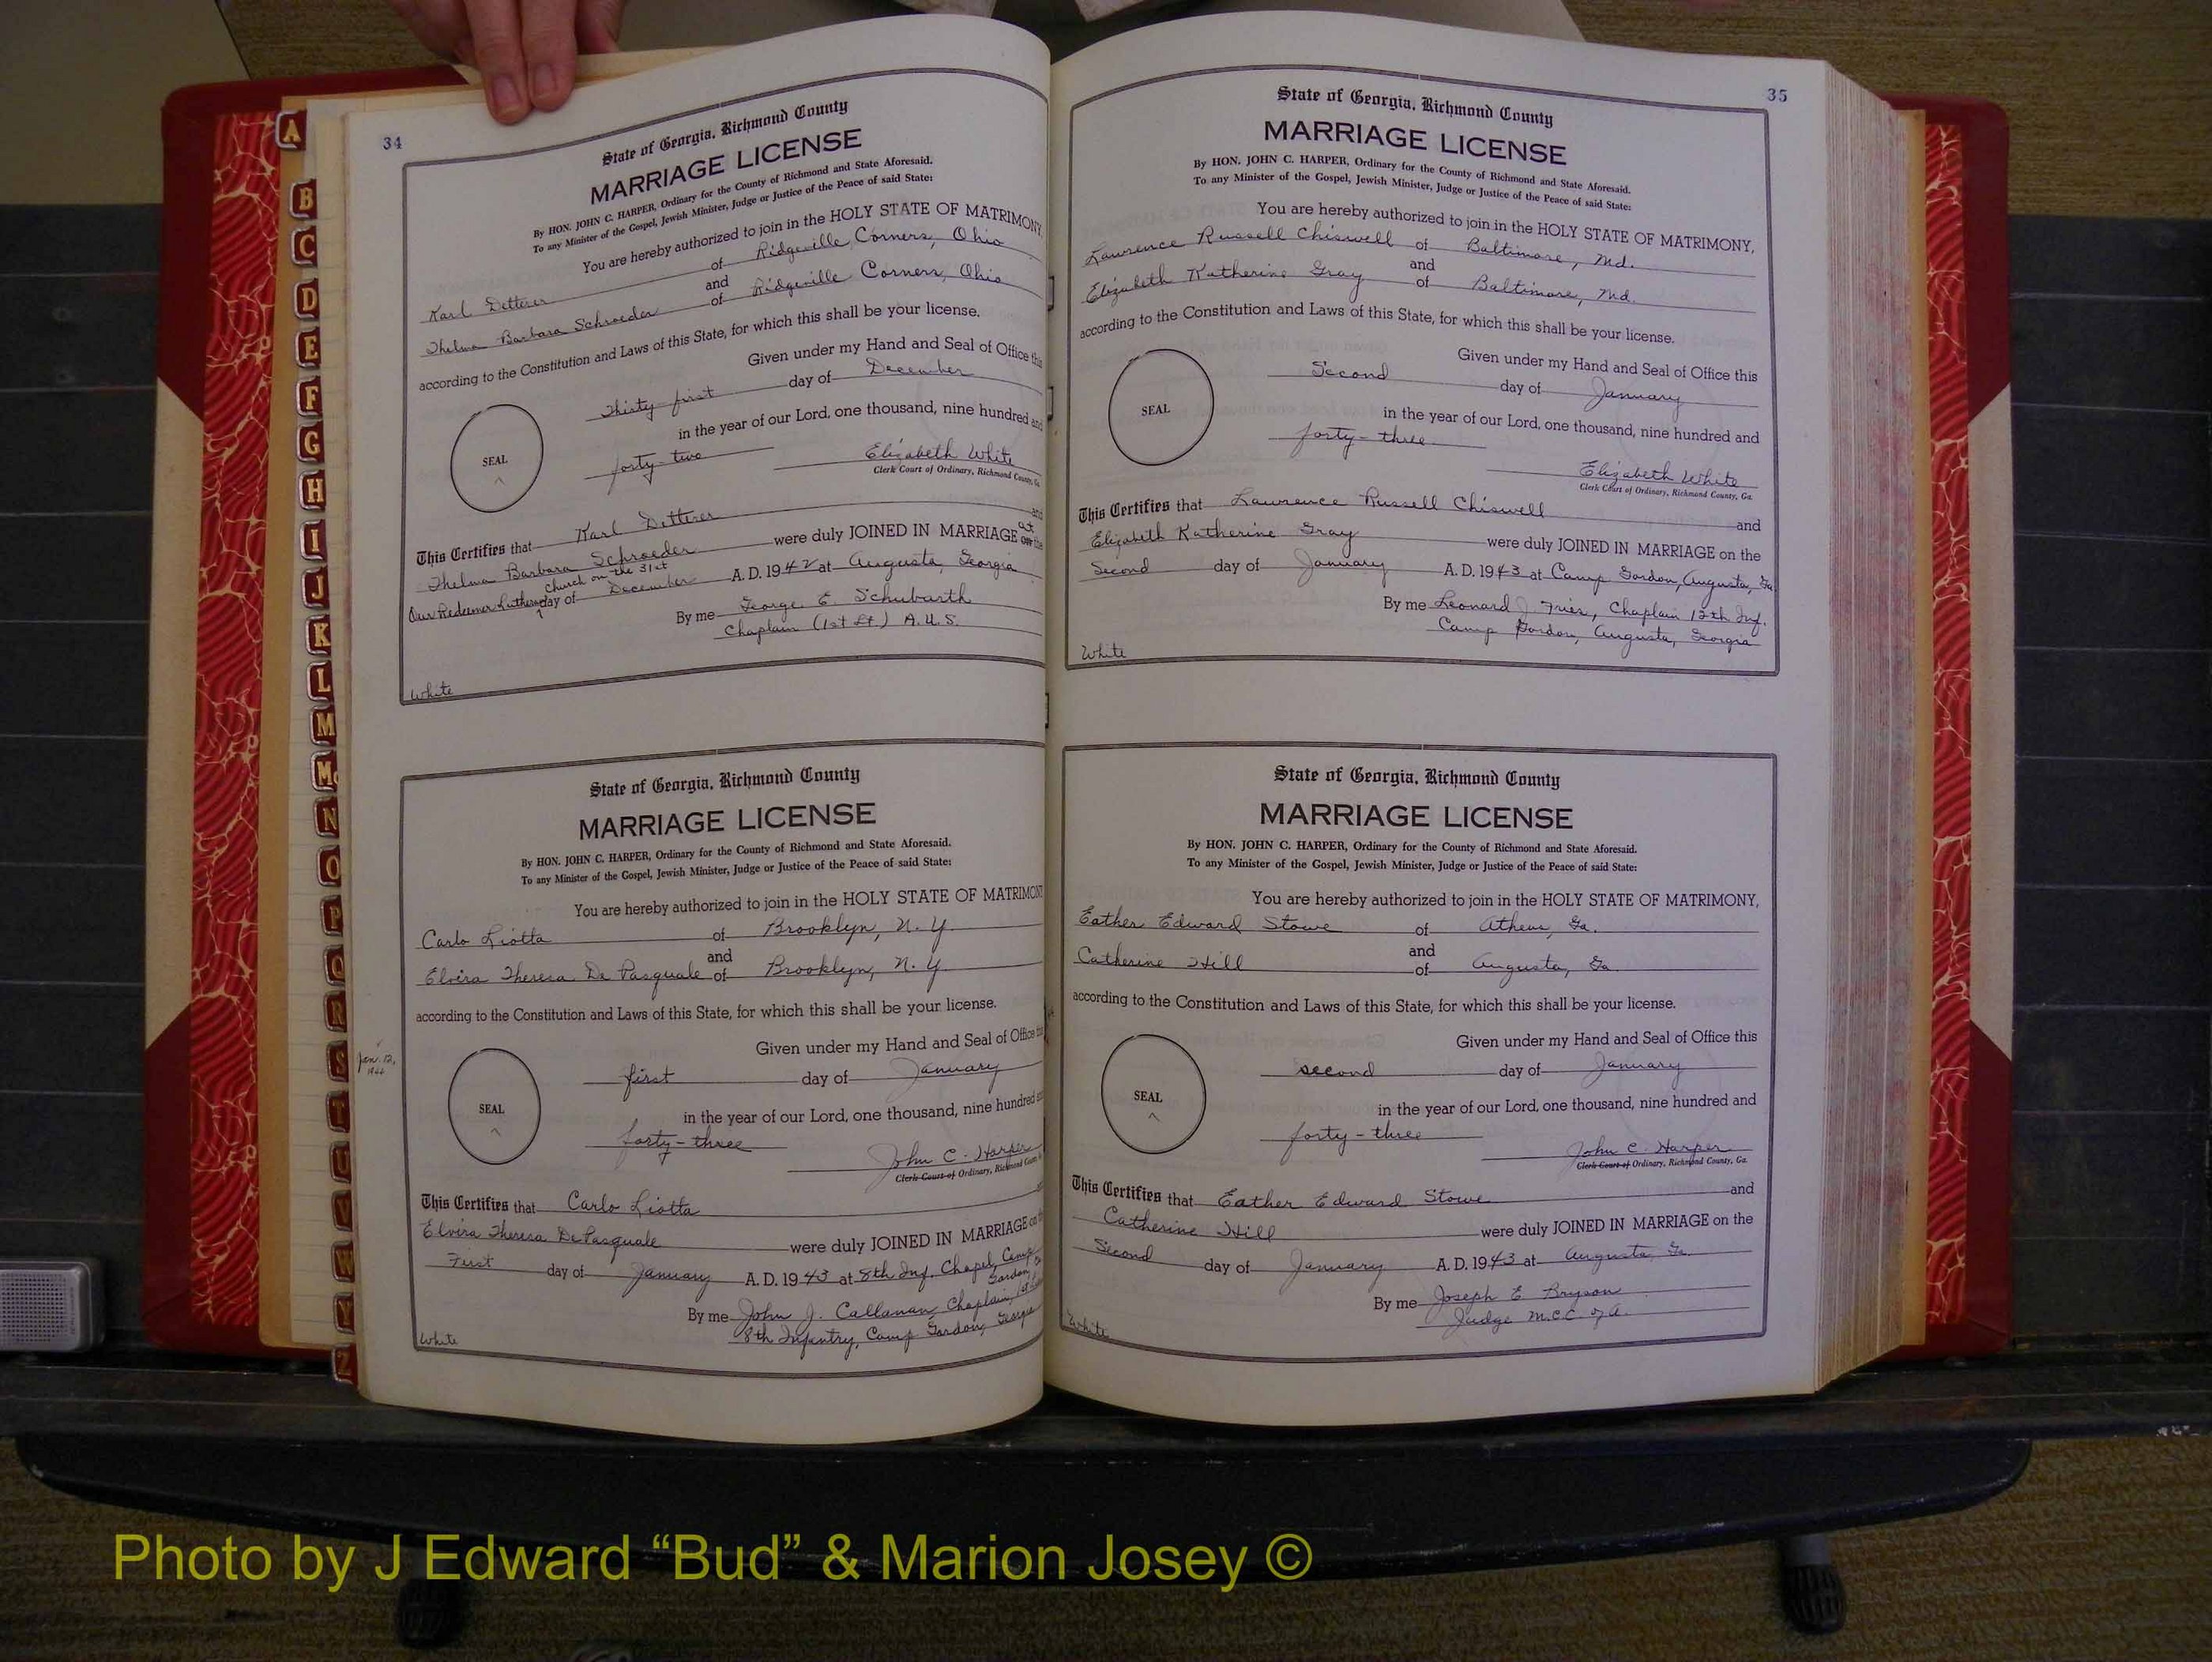 A
B
C
D
E
F
G
H
I
J
K
L
M
Mc
N
O
P
Q
R
S
T
U
V
W
Y
Z
34
State of Georgia, Richmond County
MARRIAGE LICENSE
By HON. JOHN C. HARPER, Ordinary for the County of Richmond and State Aforesaid.
To any Minister of the Gospel, Jewish Minister, Judge or Justice of the Peace of said State:
You are hereby authorized to join in the HOLY STATE OF MATRIMONY,
Karl Detterer of Ridgeville Corners, Ohio
and
Thelma Barbara Schroeder of Ridgeville Corners, Ohio
according to the Constitution and Laws of this State, for which this shall be your license.
Given under my Hand and Seal of Office this
Thirty first day of December
SEAL
in the year of our Lord, one thousand, nine hundred and
forty-two
Elizabeth White
Clerk Court of Ordinary, Richmond County, Ga.
This Certifies that Karl Detterer and
Thelma Barbara Schroeder were duly JOINED IN MARRIAGE at
Our Redeemer Lutheran church on the 31st day of December A. D. 1942 at Augusta, Georgia
By me George E. Schubarth
Chaplain (1st Lt) A.U.S.
White
State of Georgia, Richmond County
MARRIAGE LICENSE
By HON. JOHN C. HARPER, Ordinary for the County of Richmond and State Aforesaid.
To any Minister of the Gospel, Jewish Minister, Judge or Justice of the Peace of said State:
You are hereby authorized to join in the HOLY STATE OF MATRIMON
Carlo Liotta of Brooklyn, N. Y.
and
Elvira Theresa De Pasquale of Brooklyn, N. Y.
according to the Constitution and Laws of this State, for which this shall be your license.
Given under my Hand and Seal of Office
Jan. 12,
first day of January
SEAL
in the year of our Lord, one thousand, nine hundred
forty-three
John C. Harper
Clerk Court of Ordinary, Richmond County
This Certifies that Carlo Liotta
Elvira Theresa DePasquale were duly JOINED IN MARRIAGE on
First day of January A. D. 1943 at 8th Inf. Chapel, Camp
Gordon
By me John J. Callanan, Chaplain,
8th Infantry, Camp Gordon, Georgia
White
35
State of Georgia, Richmond County
MARRIAGE LICENSE
By HON. JOHN C. HARPER, Ordinary for the County of Richmond and State Aforesaid.
To any Minister of the Gospel, Jewish Minister, Judge or Justice of the Peace of said State:
You are hereby authorized to join in the HOLY STATE OF MATRIMONY,
Lawrence Russell Chiswell of Baltimore, Md.
and
Elizabeth Katherine Gray of Baltimore, Md.
according to the Constitution and Laws of this State, for which this shall be your license.
Given under my Hand and Seal of Office this
Second day of January
SEAL
in the year of our Lord, one thousand, nine hundred and
forty-three
Elizabeth White
Clerk Court of Ordinary, Richmond County, Ga.
This Certifies that Lawrence Russell Chiswell and
Elizabeth Katherine Gray were duly JOINED IN MARRIAGE on the
Second day of January A. D. 1943 at Camp Gordon, Augusta, Ga
By me Leonard J. Fries, Chaplain 12th Inf.
Camp Gordon, Augusta, Georgia
White
State of Georgia, Richmond County
MARRIAGE LICENSE
By HON. JOHN C. HARPER, Ordinary for the County of Richmond and State Aforesaid.
To any Minister of the Gospel, Jewish Minister, Judge or Justice of the Peace of said State:
You are hereby authorized to join in the HOLY STATE OF MATRIMONY,
Eather Edward Stowe of Athens, Ga.
and
Catherine Hill of Augusta, Ga
according to the Constitution and Laws of this State, for which this shall be your license.
Given under my Hand and Seal of Office this
second day of January
SEAL
in the year of our Lord, one thousand, nine hundred and
forty-three
John C. Harper
Clerk Court of Ordinary, Richmond County, Ga.
This Certifies that Eather Edward Stowe and
Catherine Hill were duly JOINED IN MARRIAGE on the
Second day of January A. D. 1943 at Augusta, Ga.
By me Joseph E. Bryson
Judge M.C.C. of A.
White
Photo by J Edward “Bud” & Marion Josey ©